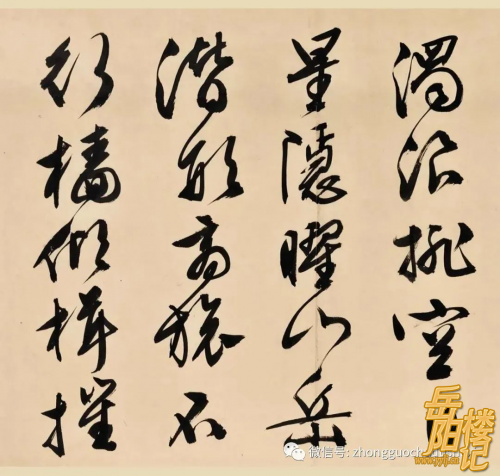 濁浪排空
星隱曜山岳
潛形商旅不
行檣傾楫摧
岳阳楼记
微信号: